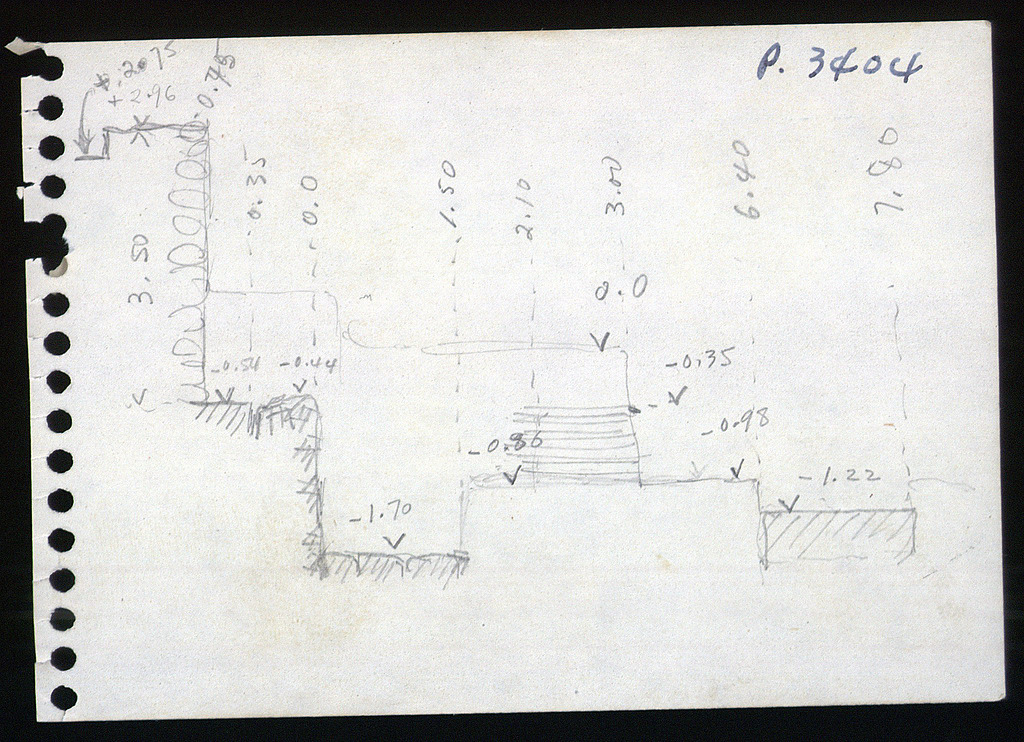 P. 3404
+2.96
-0.75
0.35
0.0
1.50
2.10
3.00
6.40
7.80
3.50
0.0
-0.54
-0.44
-0.35
-0.86
-0.98
-1.22
-1.70